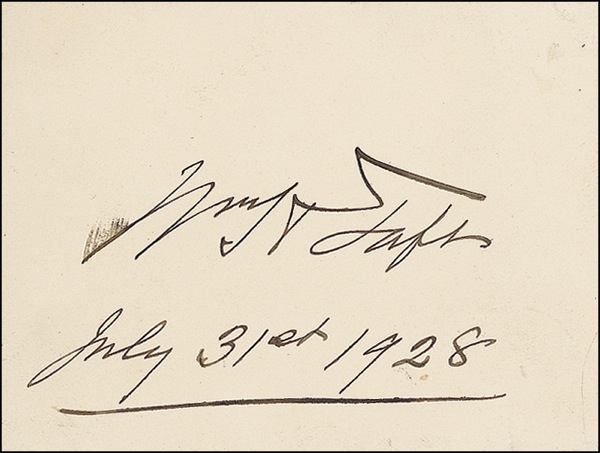 Wm H Taft
July 31st 1928